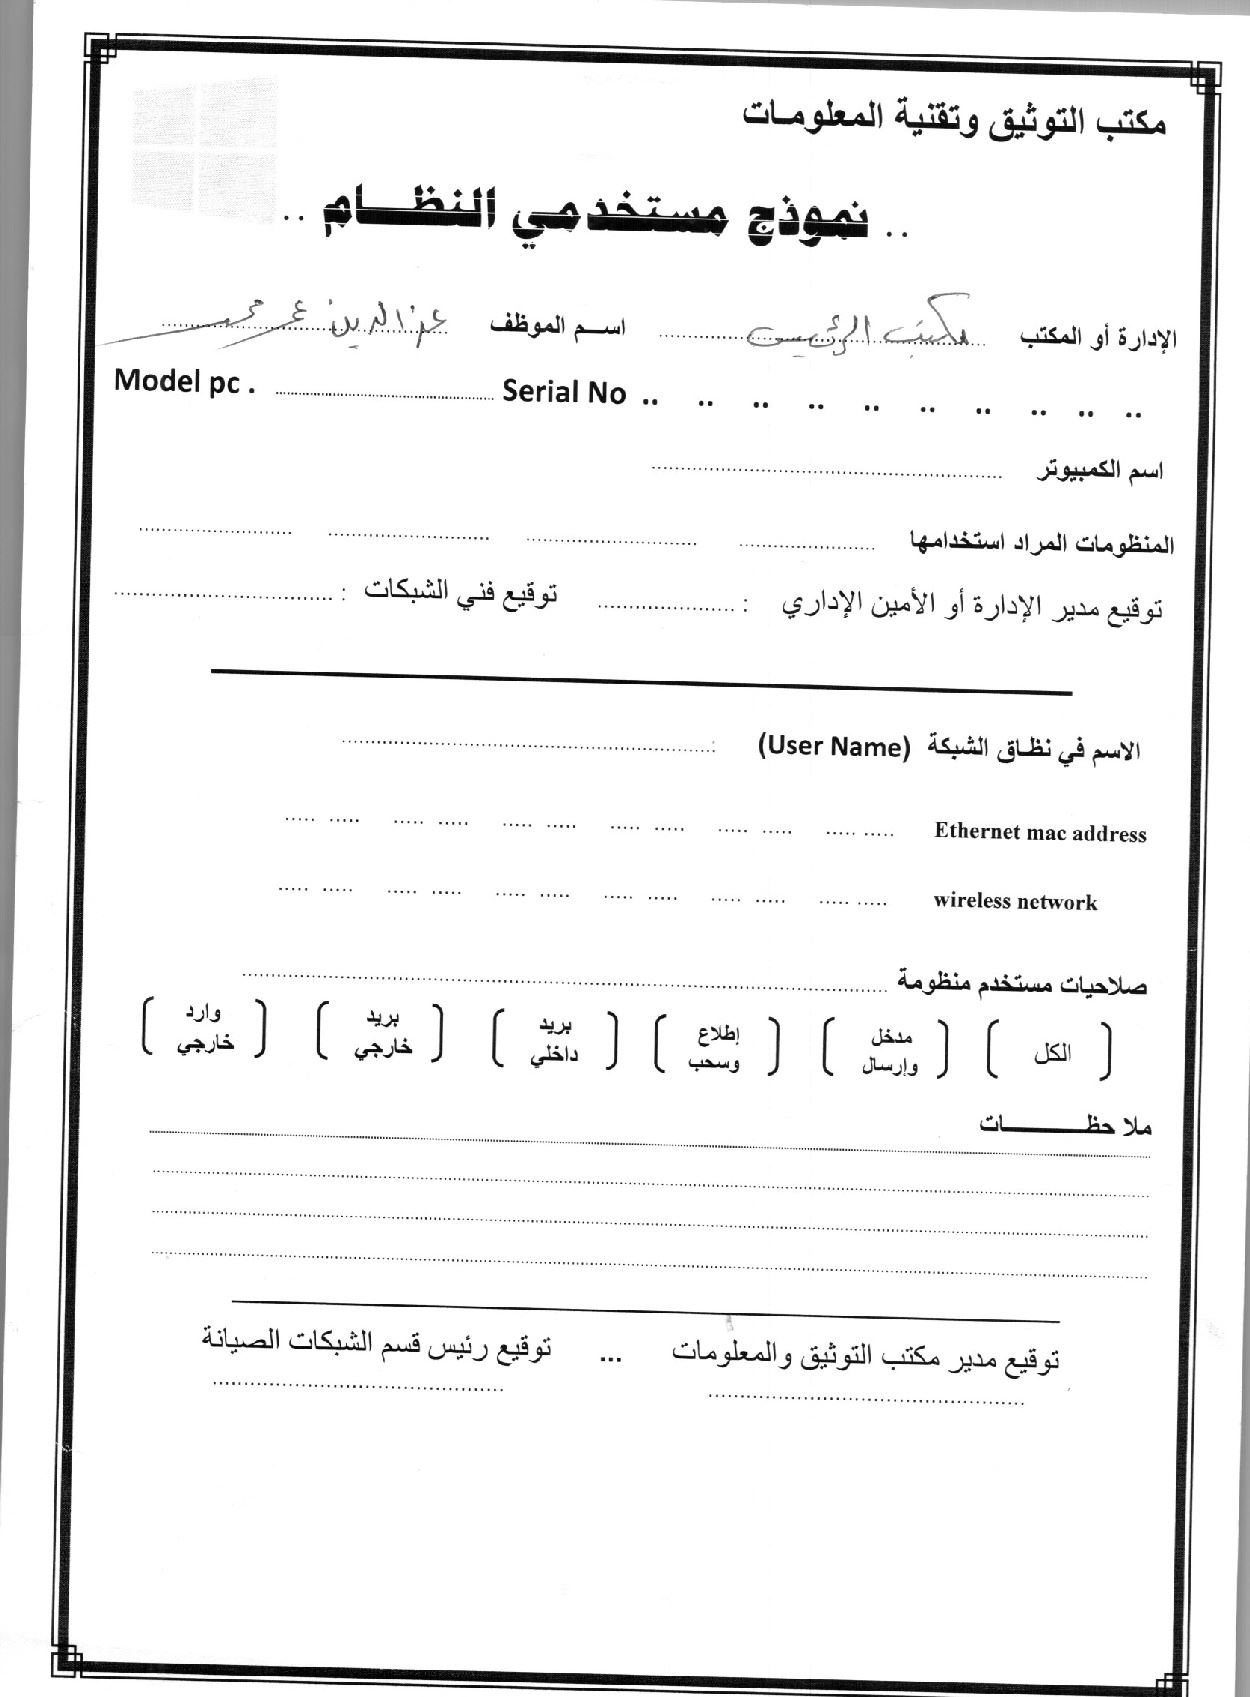 مكتب التوثيق وتقنية المعلومات
.. نموذج مستخدمي النظام ..
الإدارة أو المكتب مكتب الرئيس اسم الموظف عز الدين عمر
Model pc . Serial No .. .. .. .. .. .. .. .. .. ..
اسم الكمبيوتر
المنظومات المراد استخدامها
توقيع مدير الإدارة أو الأمين الإداري : توقيع فني الشبكات :
الاسم في نظاق الشبكة (User Name) :
Ethernet mac address
wireless network
صلاحيات مستخدم منظومة
( الكل ) ( مدخل وإرسال ) ( إطلاع وسحب ) ( بريد داخلي ) ( بريد خارجي ) ( وارد خارجي )
ملاحظات
توقيع مدير مكتب التوثيق والمعلومات ... توقيع رئيس قسم الشبكات الصيانة